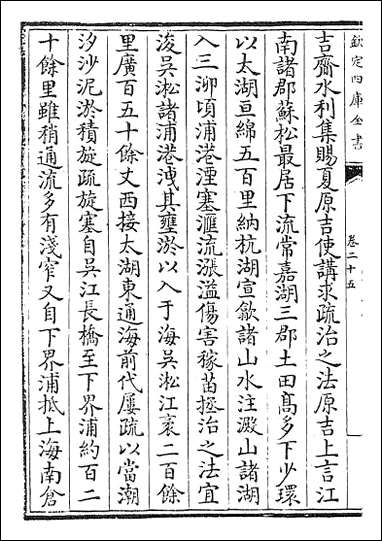 欽定四庫全書
卷二十五
吉齊水利集賜夏原吉使講求疏治之法原吉上言江
南諸郡蘇松最居下流常嘉湖三郡土田髙多下少環
以太湖亘綿五百里納杭湖宣歙諸山水注澱山諸湖
入三泖頃浦港湮塞滙流漲溢傷害稼苗拯治之法宜
浚吳淞諸浦港洩其壅淤以入于海吳淞江袤二百餘
里廣百五十餘丈西接太湖東通海前代屢疏以當潮
汐沙泥淤積旋疏旋塞自吳江長橋至下界浦約百二
十餘里雖稍通流多有淺窄又自下界浦抵上海南倉